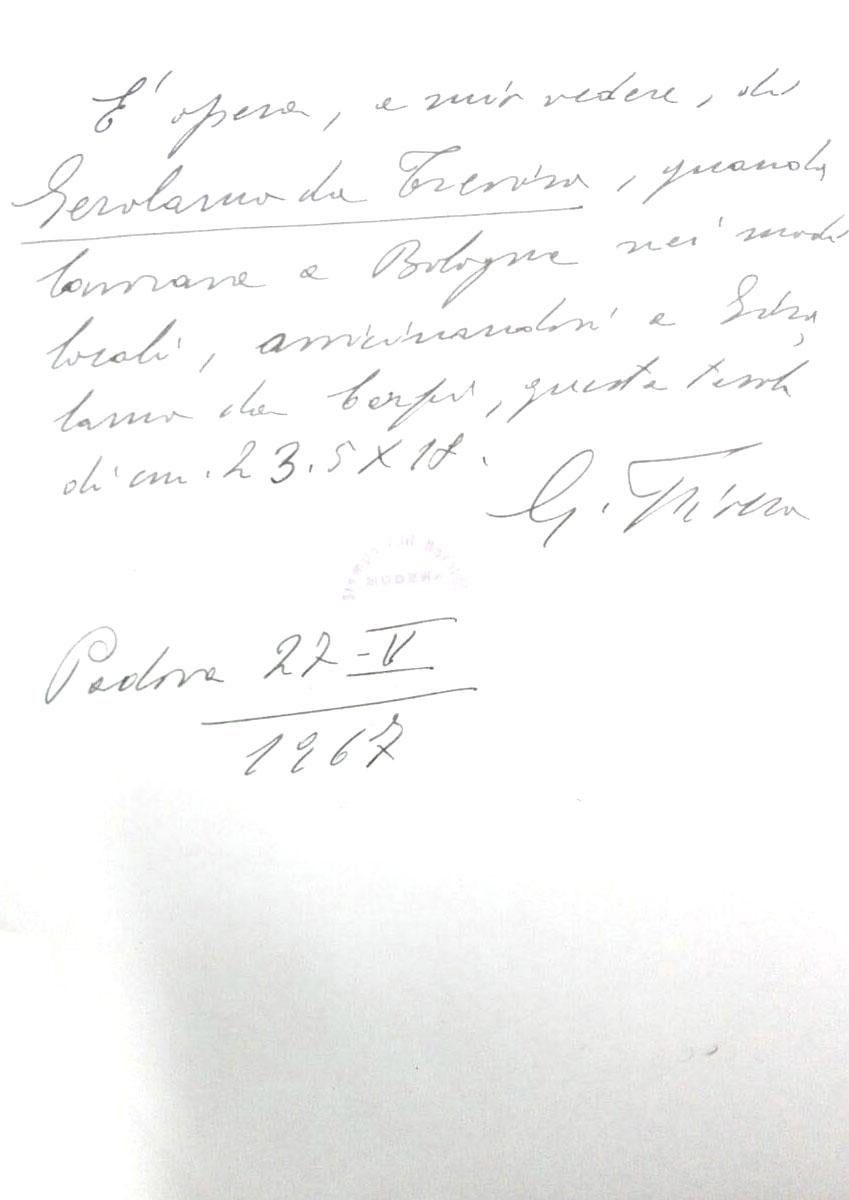 E' opera, a mio vedere, di
Gerolamo da Treviso, quando
lavorava a Bologna nei modi
locali, avvicinandosi a Giro
lamo da Carpi, questa tavola
di cm. 23.5 X 18.
G. Fiocco
Padova 27-V
1967